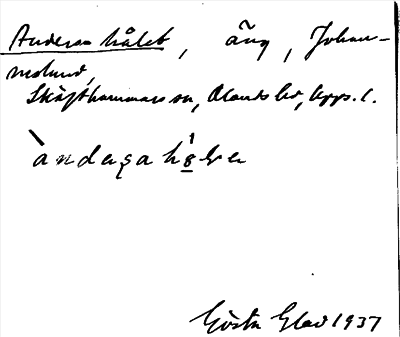 Anders-hålet, äng, Johan-
neslund,
Skäfthammars sn, Olands hd, Upps. l.
àndeṣa hó̱lεn
Gösta Glad 1937